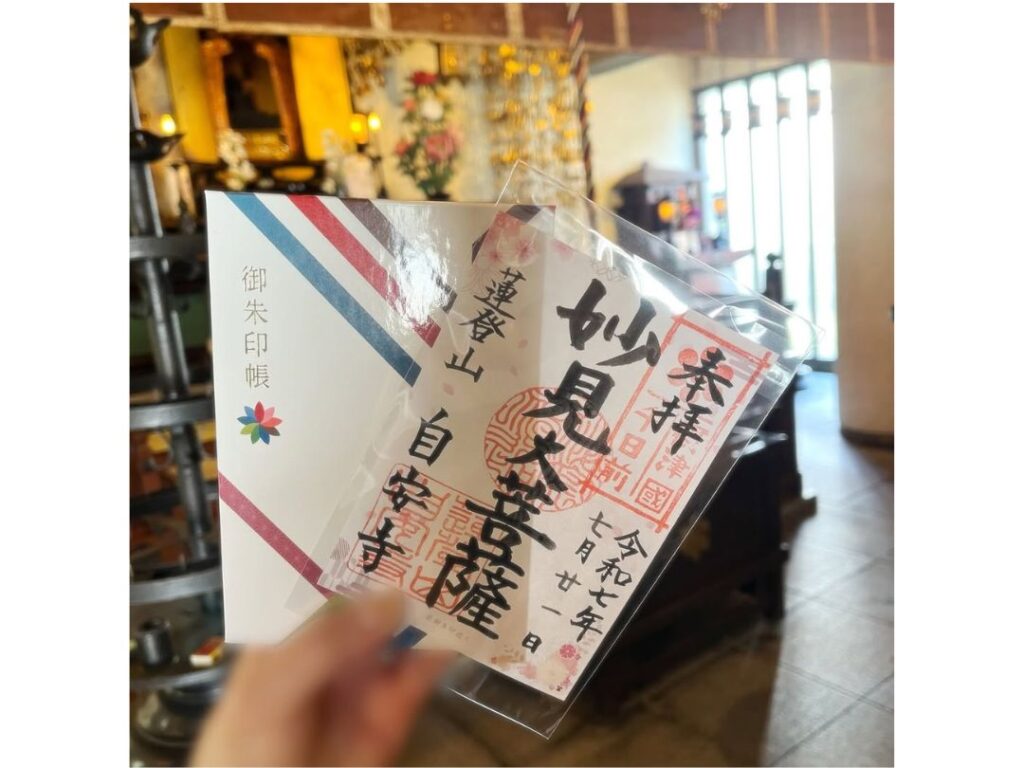 御朱印帳
奉拝
千日前
津國
妙見大菩薩
令和七年
七月廿一日
蓮登山
自安寺